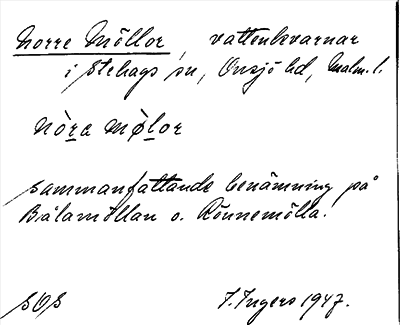 Norre Möllor, vattenkvarnar
i Stehags sn, Onsjö hd, Malm. l.
nò̱ra mø̱̀lor
sammanfattande benämning på
Bålamöllan o. Rönnemölla.
SOS I. Ingers 1947.